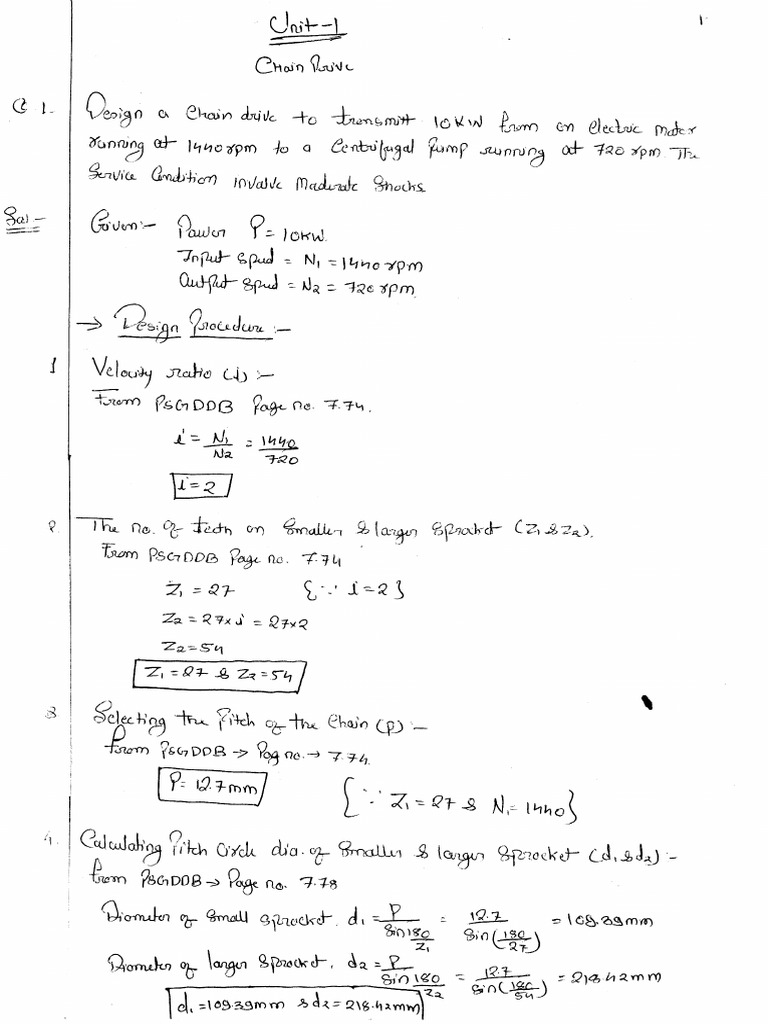 Unit-1
1
Chain Drive
Q 1. Design a Chain drive to transmitt 10KW from an electric motor
running at 1440 rpm to a Centrifugal Pump running at 720 rpm. The
Service Condition involve Moderate Shocks.
Sol:- Given:- Power P = 10KW.
Input Speed = N1 = 1440 rpm
Output Speed = N2 = 720 rpm.
→ Design Procedure:-
1 Velocity ratio (i) :-
From PSGDDB Page no. 7.74.
i = N1/N2 = 1440/720
i = 2
2. The no. of teeth on Smaller & larger Sprocket (Z1 & Z2).
From PSGDDB Page no. 7.74
Z1 = 27 {∵ i = 2}
Z2 = 27 × i = 27×2
Z2 = 54
Z1 = 27 & Z2 = 54
3 Selecting the Pitch of the Chain (p) :-
from PSGDDB → Pag no. → 7.74.
P = 12.7 mm {∵ Z1 = 27 & N1 = 1440}
4. Calculating Pitch Circle dia. of Smaller & larger Sprocket (d1 & d2) :-
from PSGDDB → Page no. 7.78
Diameter of Small Sprocket. d1 = P/Sin 180/Z1 = 12.7/Sin(180/27) = 109.39mm
Diameter of larger Sprocket. d2 = P/Sin 180/Z2 = 12.7/Sin(180/54) = 218.42mm
d1 = 109.39mm & d2 = 218.42mm